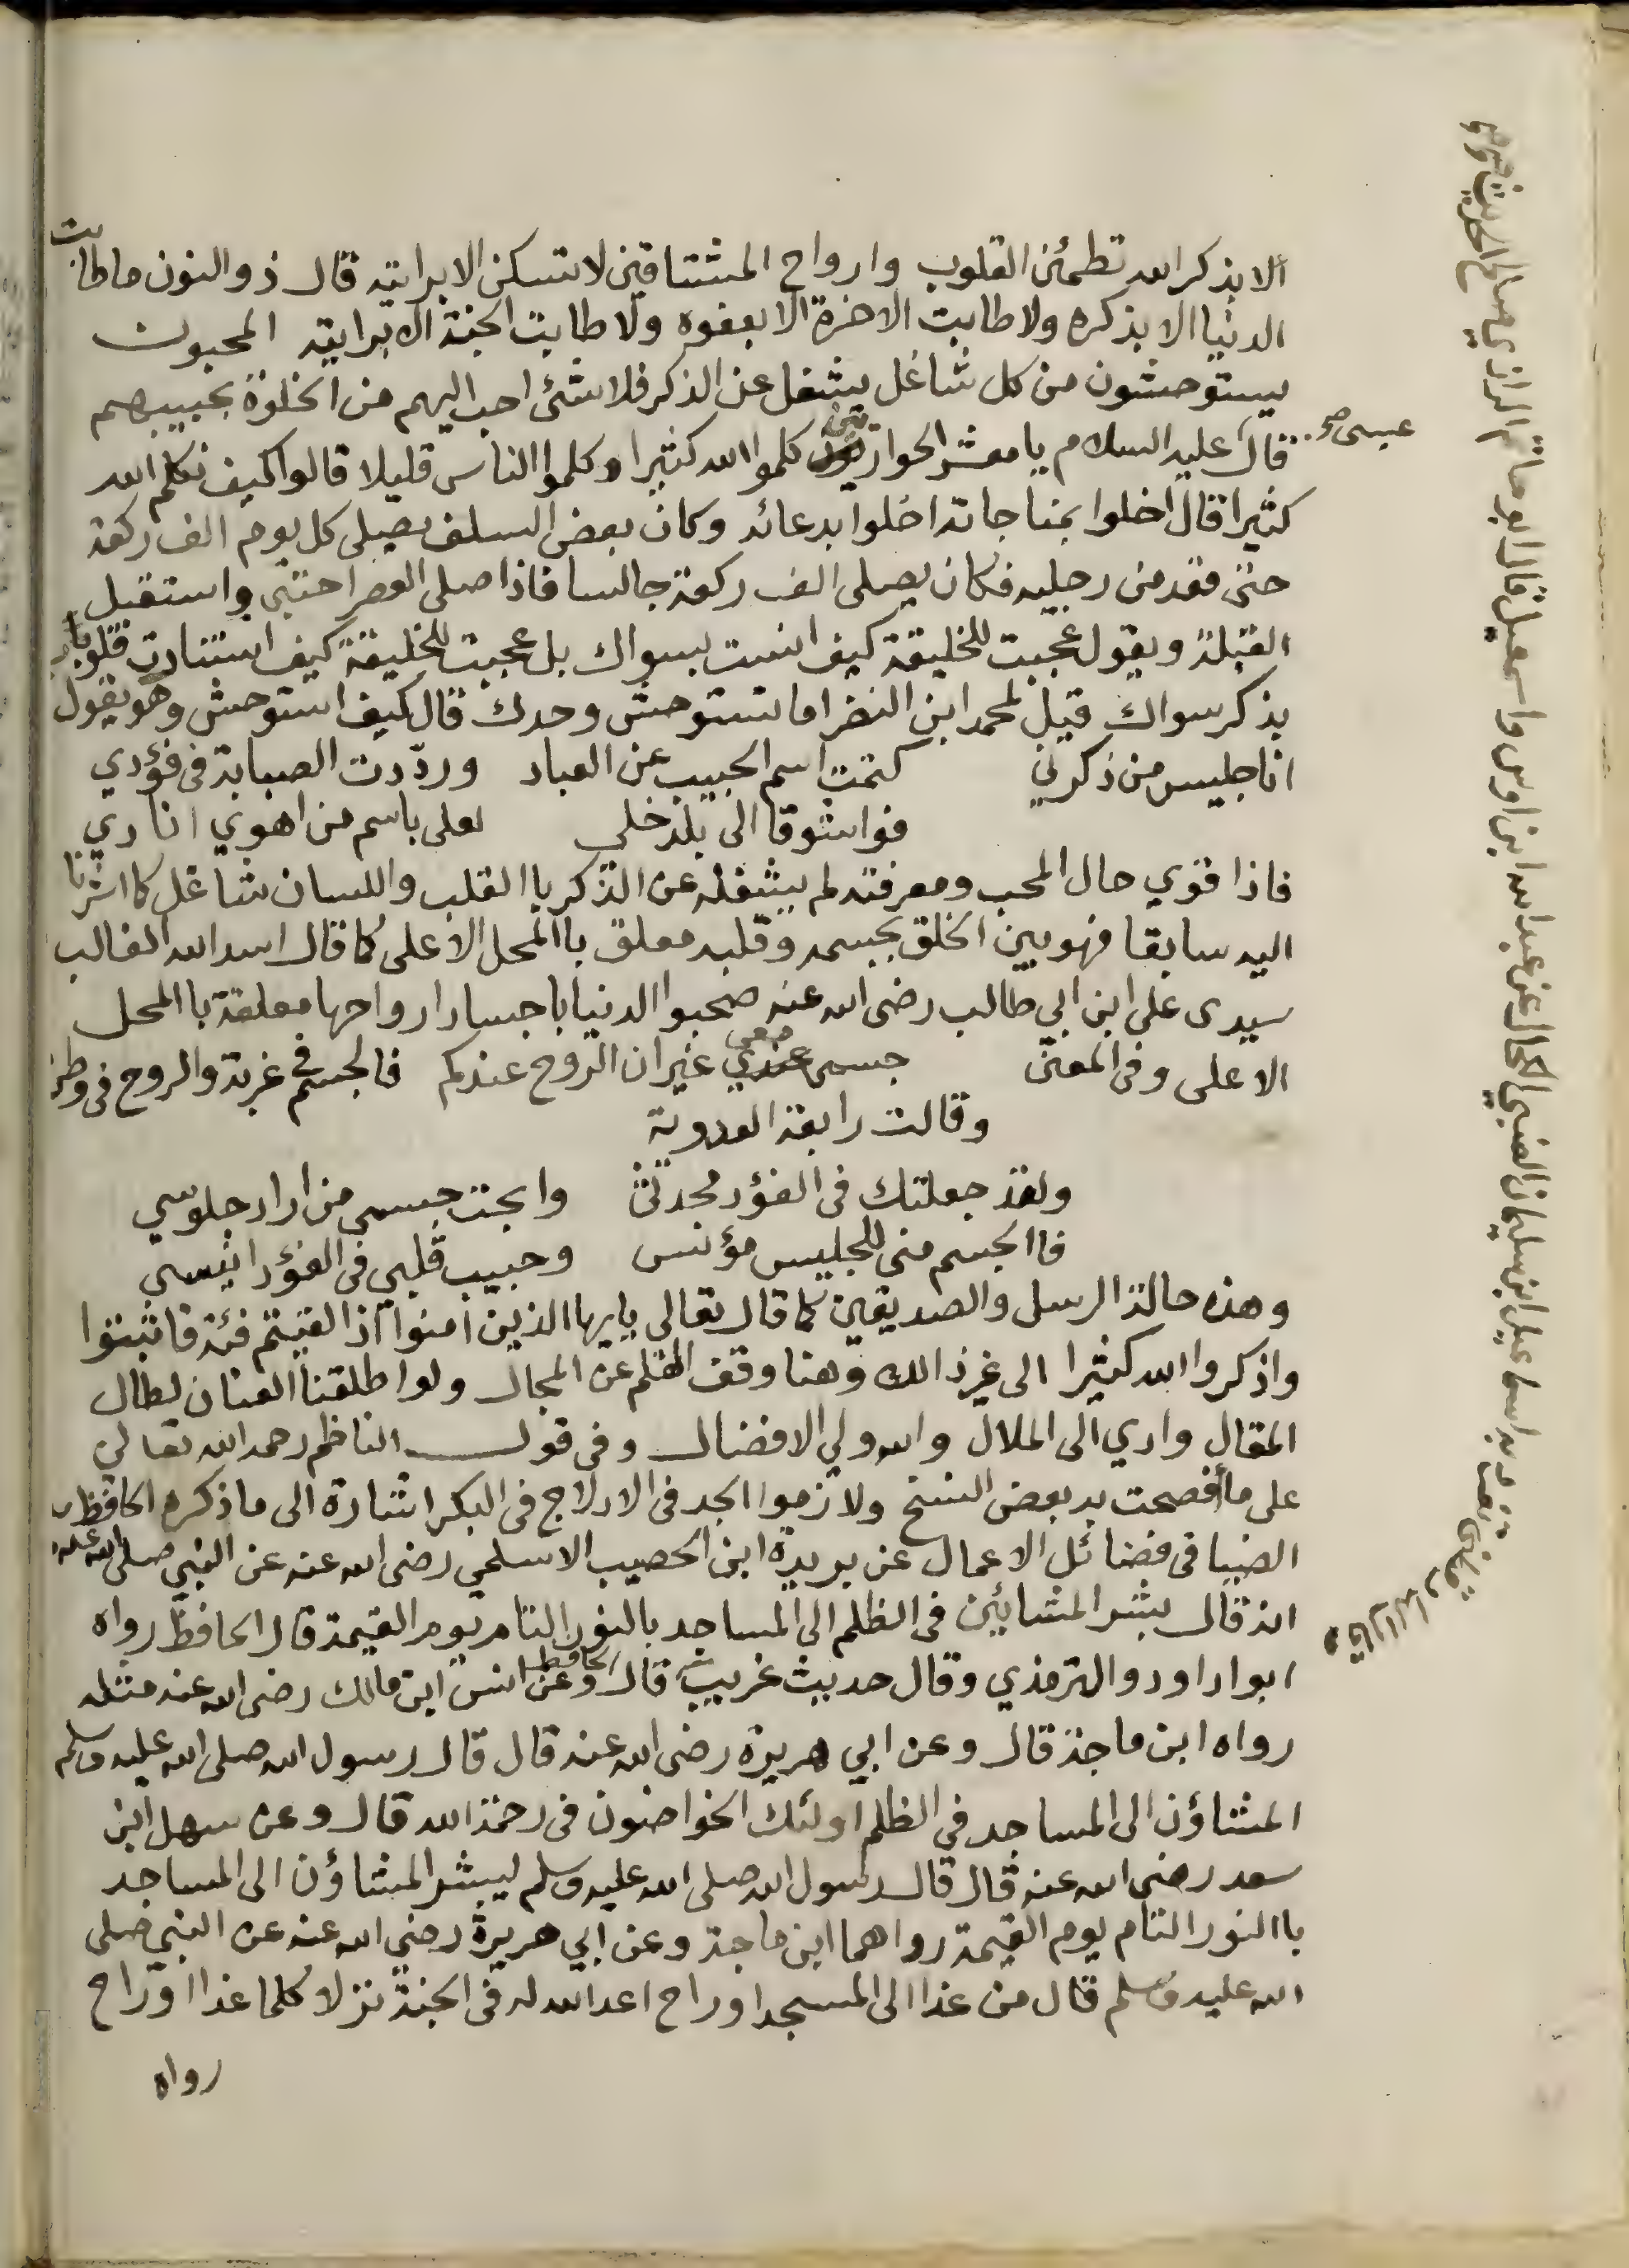 ألا بذكر الله تطمئن القلوب وارواح المشتاقين لا تسكن الا برايته قال ذو النون ما طابت
الدنيا الا بذكره ولا طابت الاخرة الا بعفوه ولا طابت الجنة الا برايته المحبون
يستوحشون من كل شاغل يشغل عن الذكر فلا شئ احب اليهم من الخلوة بحبيبهم
قال عليه السلام يا معشر الحواريين كلموا الله كثيرا وكلموا الناس قليلا قالوا كيف نكلم الله
عيسى صح
كثيرا قال اخلوا بمناجاته اخلوا بدعائه وكان بعض السلف يصلي كل يوم الف ركعة
حتى قعد من رجليه فكان يصلى الف ركعة جالسا فاذا صلى العصر احتبى واستقبل
القبلة ويقول عجبت للخليقة كيف انست بسواك بل عجبت للخليقة كيف استنارت قلوبها
بذكر سواك قيل لمحمد ابن النضر اما تستوحش وحدك قال كيف استوحش وهو يقول
انا جليس من ذكرني كتمت اسم الحبيب عن العباد وردّدت الصبابة فى فؤدي
فواشوقا الى بلد خلي لعلى باسم من اهوي انادي
فاذا قوي حال المحب ومعرفته لم يشغله عن الذكر باالقلب واللسان شاغل كما اشرنا
اليه سابقا فهو بين الخلق بجسمه وقلبه معلق باالمحل الاعلى كما قال اسد الله الغالب
سيدى على ابن ابي طالب رضى الله عنه صحبوا الدنيا باجساد ارواحها معلقة باالمحل
الاعلى وفى المعنى جسمى معي غير ان الروح عندكم فالجسم في غربة والروح فى وطن
وقالت رابعة العدوية
ولقد جعلتك فى الفؤد محدثى وابحت جسمى من اراد جلوسي
فاالجسم منى للجليس مؤنس وحبيب قلبي فى الفؤد انيسى
وهذه حالة الرسل والصديقين كما قال تعالى يايها الذين امنوا اذا لقيتم فئة فاثبتوا
واذكروا الله كثيرا الى غير ذالك وهنا وقف القلم عن المجال ولو اطلقنا العنان لطال
المقال وادي الى الملال والله ولي الافضال وفى قول الناظم رحمه الله تعالي
على ما أفصحت به بعض النسخ ولازموا الجد فى الادلاج فى البكر اشارة الى ما ذكره الحافظ
الضيا فى فضائل الاعمال عن بريدة ابن الحصيب الاسلمي رضى الله عنه عن النبي صلى الله عليه
انه قال بشر المشايئين فى الظلم الى المساجد بالنور التام يوم القيمة قال الحافظ رواه
ابوا داود والترمذي وقال حديث غريب قال الحافظ وعن انس ابن مالك رضى الله عنه مثله
رواه ابن ماجة قال وعن ابي هريرة رضى الله عنه قال قال رسول الله صلى الله عليه وسلم
المشاؤن الى المساجد في الظلم اولئك الخواضون فى رحمة الله قال وعن سهل ابن
سعد رضى الله عنه قال قال رسول الله صلى الله عليه وسلم ليبشر المشاؤن الى المساجد
باالنور التام يوم القيمة رواهما ابن ماجة وعن ابي هريرة رضى الله عنه عن النبي صلى
الله عليه وسلم قال من غدا الى المسجد او راح اعد الله له فى الجنة نزلا كلما غدا او راح
رواه